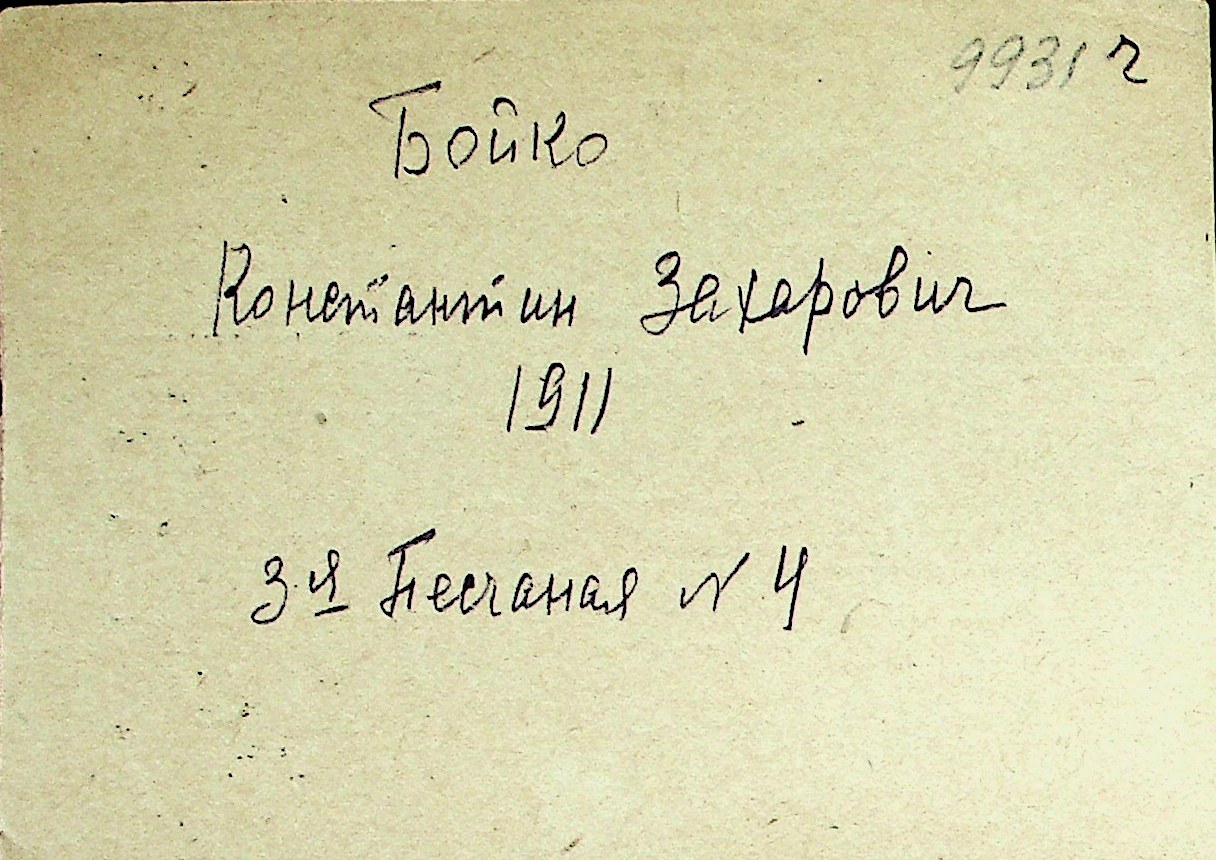 9931 г
Бойко
Константин Захарович
1911
3-я Песчаная N 4